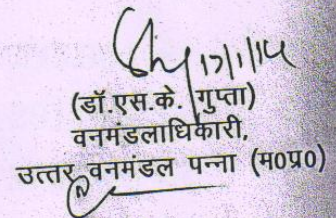 17/1/14
(डॉ.एस.के. गुप्ता)
वनमंडलाधिकारी,
उत्तर वनमंडल पन्ना (म0प्र0)